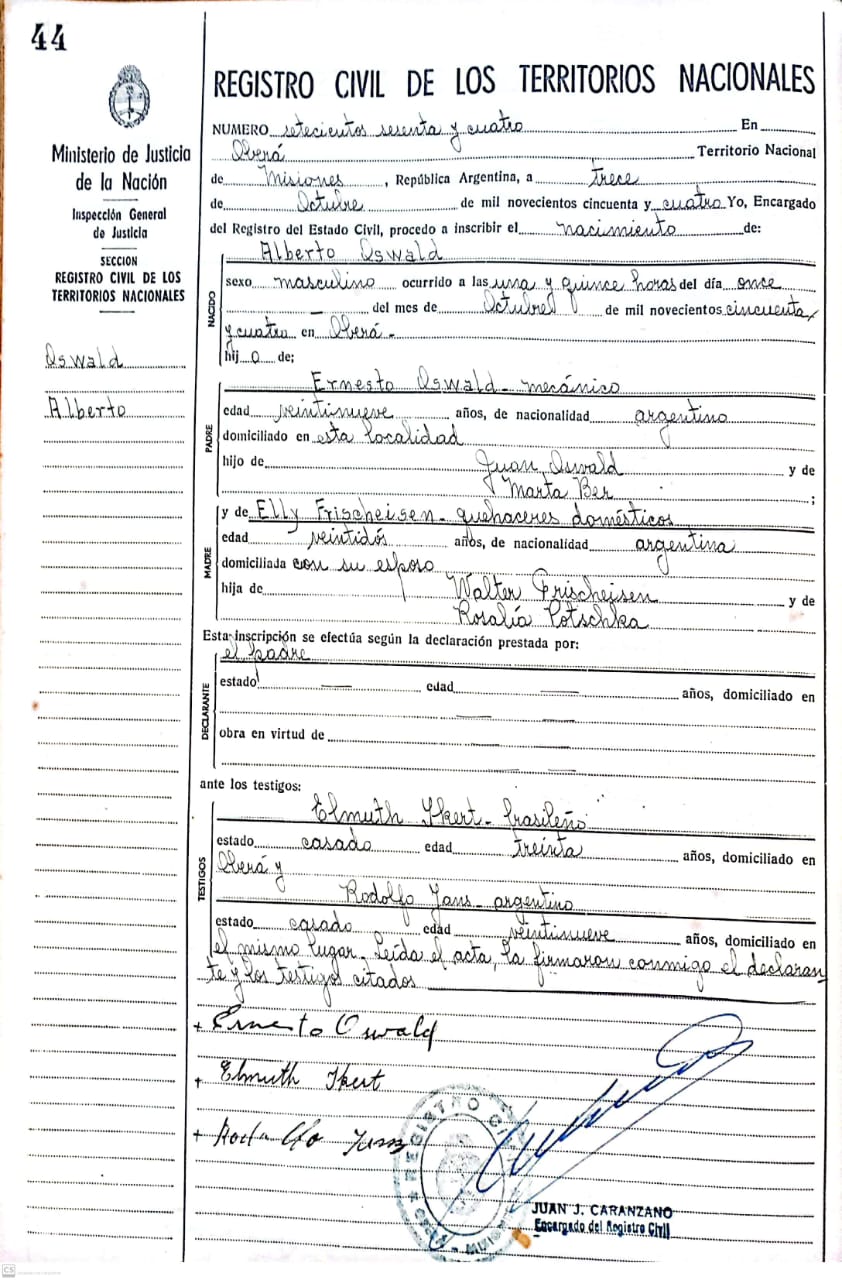 44
Ministerio de Justicia
de la Nación
Inspección General
de Justicia
SECCION
REGISTRO CIVIL DE LOS
TERRITORIOS NACIONALES
Oswald
Alberto
REGISTRO CIVIL DE LOS TERRITORIOS NACIONALES
NUMERO setecientos sesenta y cuatro En
Oberá Territorio Nacional
de Misiones, República Argentina, a trece
de Octubre de mil novecientos cincuenta y cuatro Yo, Encargado
del Registro del Estado Civil, procedo a inscribir el nacimiento de:
Alberto Oswald
NACIDO
sexo masculino ocurrido a las una y quince horas del día once
del mes de Octubre de mil novecientos cincuenta
y cuatro en Oberá.-
hijo de;
PADRE
Ernesto Oswald - mecánico
edad veintinueve años, de nacionalidad argentino
domiciliado en esta localidad
hijo de Juan Oswald y de
Marta Ber ;
MADRE
y de Elly Frischeisen - quehaceres domésticos
edad veintidós años, de nacionalidad argentina
domiciliada con su esposo
hija de Walter Frischeisen y de
Rosalía Potschka
Esta inscripción se efectúa según la declaración prestada por:
el padre
DECLARANTE
estado — edad — años, domiciliado en
— —
obra en virtud de —
ante los testigos:
TESTIGOS
Elmuth Ikert - brasileño
estado casado edad treinta años, domiciliado en
Oberá y
Rodolfo Jans - argentino
estado casado edad veintinueve años, domiciliado en
el mismo lugar. Leída el acta, la firmaron conmigo el declaran-
te y los testigos citados
+ Ernesto Oswald
+ Elmuth Ikert
+ Rodolfo Jans
REGISTRO CIVIL
JUAN J. CARANZANO
Encargado del Registro Civil
CS